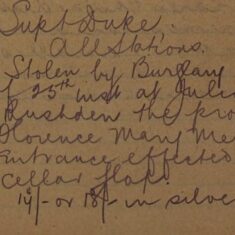 Supt Duke.
All Stations.
Stolen by Burglary
25th inst at Julia
Rushden the pro
Florence Mary Me
Entrance effected
cellar flap.
14/- or 18/- in silve